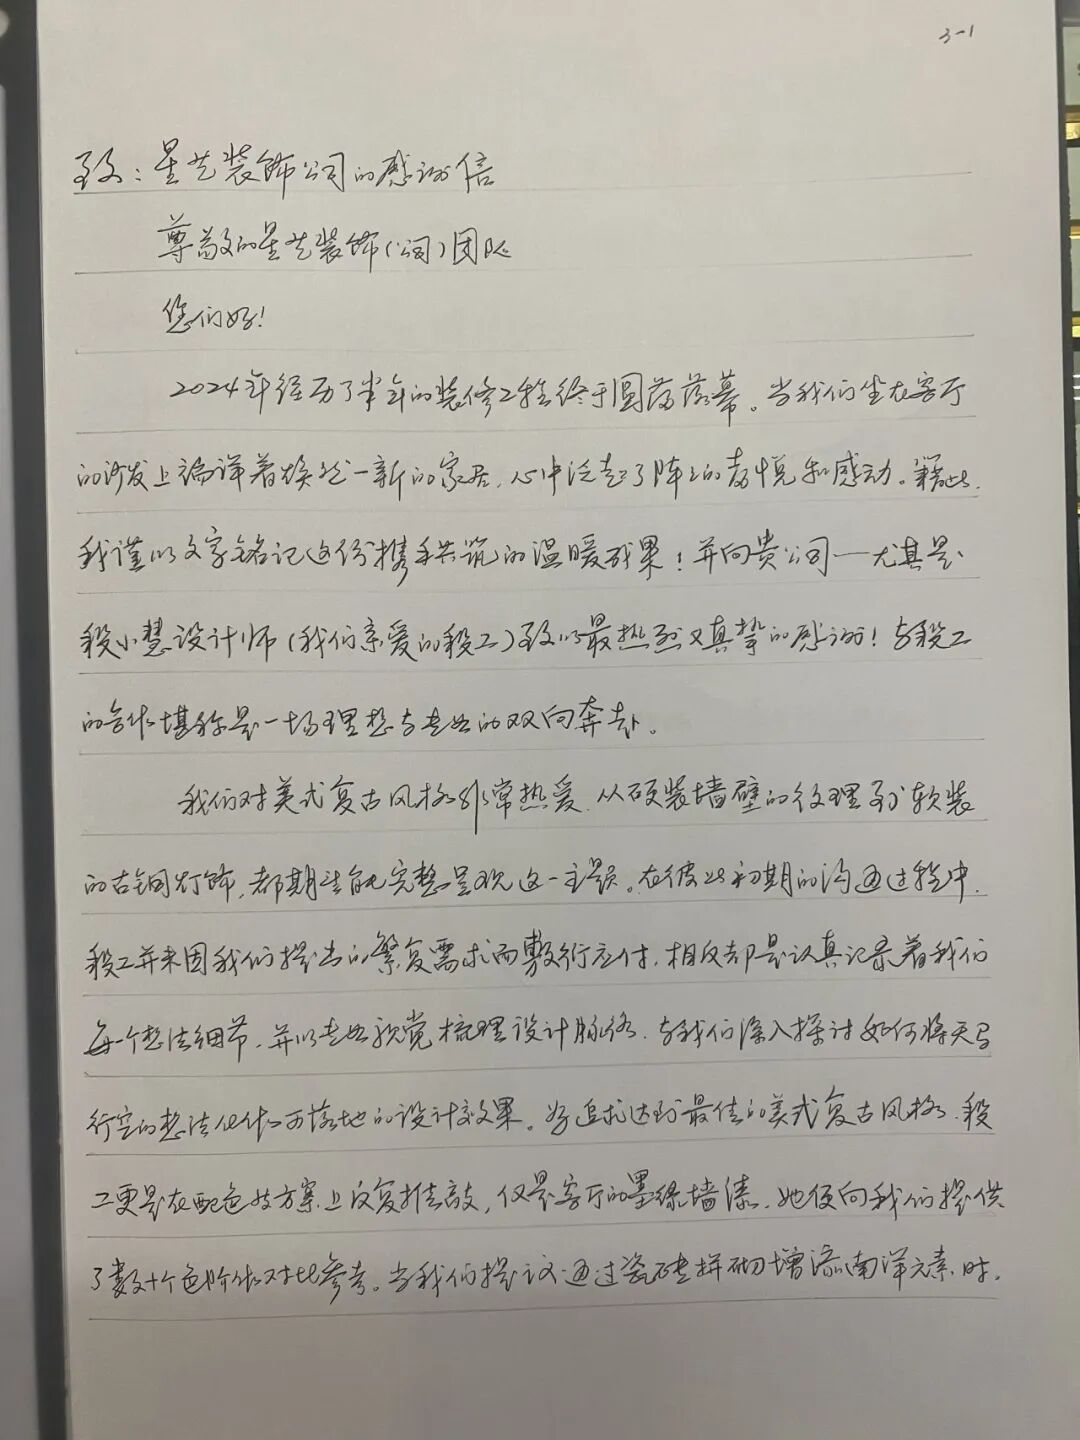 3-1
致：星艺装饰公司的感谢信
尊敬的星艺装饰(公司)团队
您们好！
2024年经历了半年的装修工程终于圆满落幕。当我们坐在客厅
的沙发上端详着焕然一新的家居，心中泛起了阵阵的喜悦和感动。籍此，
我谨以文字铭记这份携手共筑的温暖成果！并向贵公司—尤其是
段小慧设计师(我们亲爱的段工)致以最热烈又真挚的感谢！与段工
的合作堪称是一场理想与专业的双向奔赴。
我们对美式复古风格非常热爱，从硬装墙壁的纹理到软装
的古铜灯饰，都期望能完整呈现这一主题。在彼此初期的沟通过程中，
段工并未因我们提出的繁复需求而敷衍应付，相反却是认真记录着我们
每一个想法细节，并以专业视觉梳理设计脉络，与我们深入探讨如何将天马
行空的想法化作可落地的设计效果。为追求达到最佳的美式复古风格，段
工更是在配色方案上反复推敲，仅是客厅的墨绿墙漆，她便向我们提供
了数十个色阶作对比参考。当我们提议通过瓷砖拼砌增添南洋元素时，